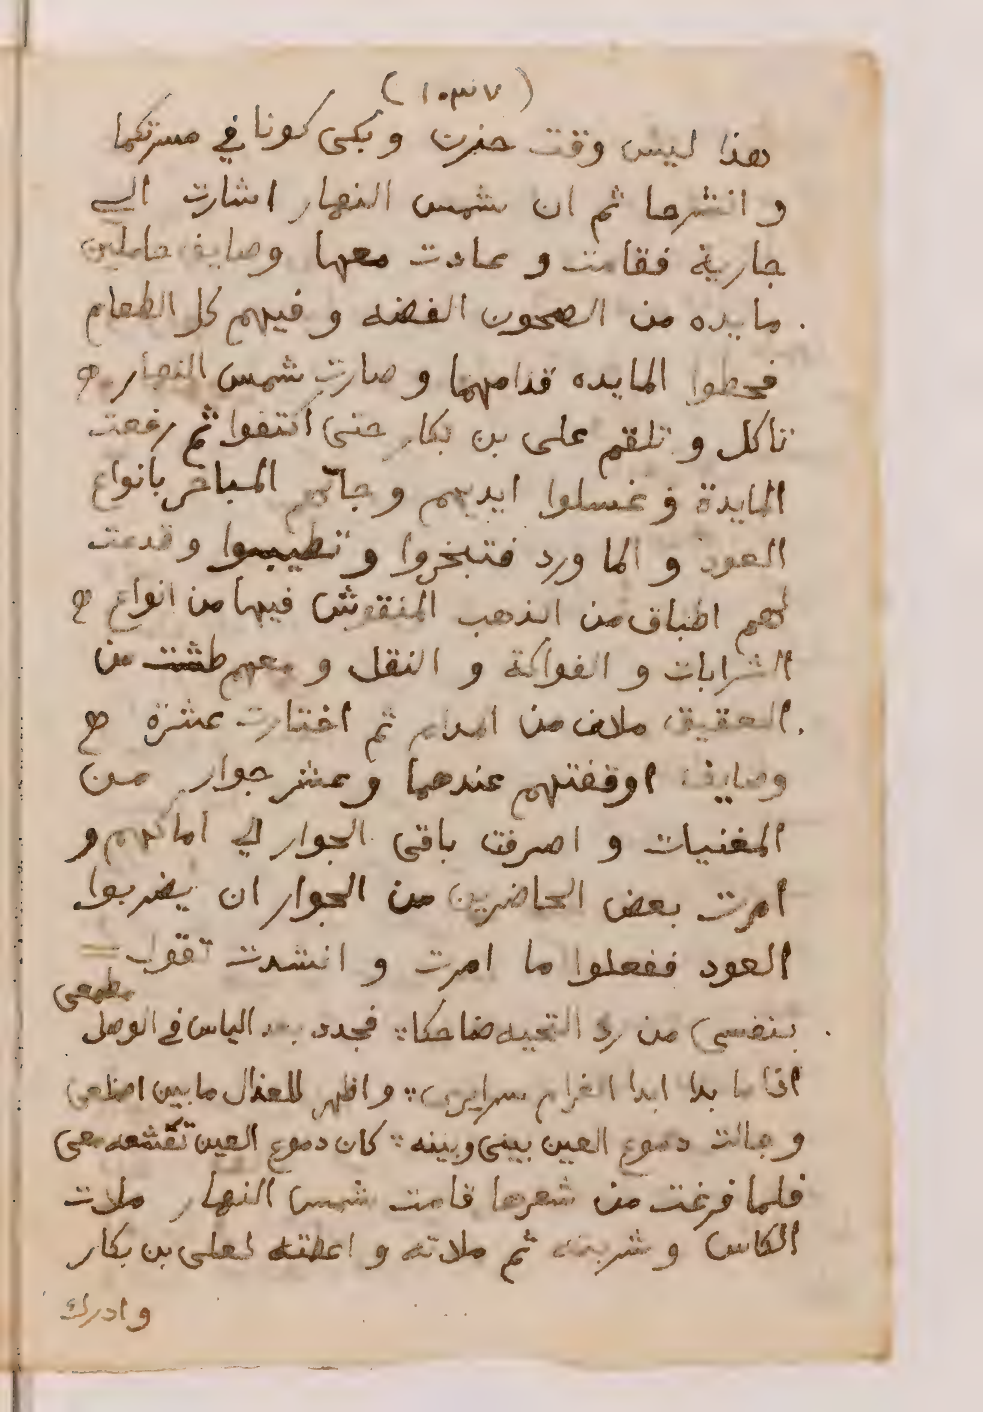 (١٠٣٧)
هذا ليس وقت حزن وبكى كونا في مسرتكما
و انشرحا ثم ان شمس النهار اشارت الي
جارية فقامت و عادت معها وصايف حاملين
مايده من الصحون الفضه و فيهم كل الطعام
فحطوا المايده قدامهما و صارت شمس النهار
تاكل و تلقم على بن بكار حتى اكتفوا ثم رفعت
المايدة و غسلوا ايديهم و جاتهم المباخر بانواع
العود و الما ورد فتبخروا و تطيبوا و قدمت
لهم اطباق من الذهب المنقوش فيها من انواع
الشرابات و الفواكة و النقل و معهم طشت من
العقيق ملان من المدام ثم اختارت عشرة
وصايف اوقفتهم عندهما و عشر جوار من
المغنيات و اصرفت باقى الجوار الي اماكنهم و
امرت بعض الحاضرين من الجوار ان يضربوا
العود ففعلوا ما امرت و انشدت تقول
بنفسى من رد التحيه ضاحكا فجدد بعد الياس في الوصل مطمعى
اذا ما بدا ابدا الغرام سرايرى و اظهر للعذال ما بين اضلعى
و حالت دموع العين بينى وبينه كان دموع العين تعشقه معى
فلما فرغت من شعرها قامت شمس النهار ملات
الكاس و شربته ثم ملاته و اعطته لعلى بن بكار
و ادرك